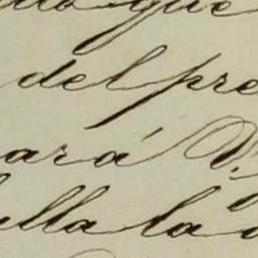 que
del pre
ará D.
lla la